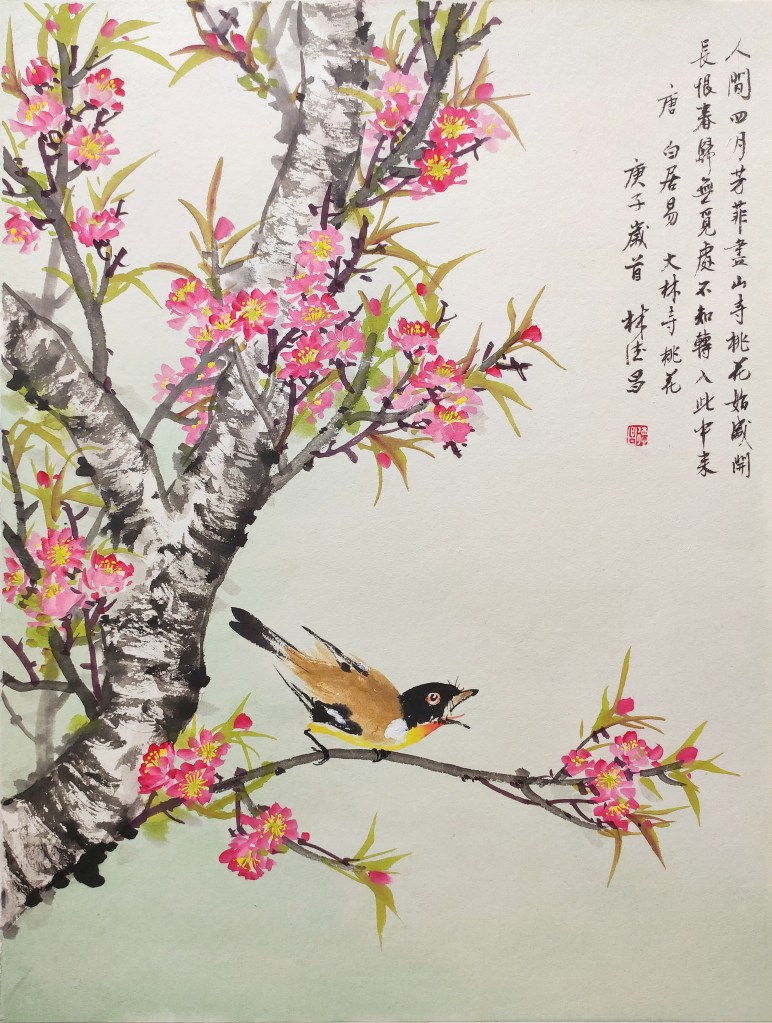 人間四月芳菲盡山寺桃花始盛開
長恨春歸無覓處不知轉入此中来
唐 白居易 大林寺桃花
庚子歲首 林德昌